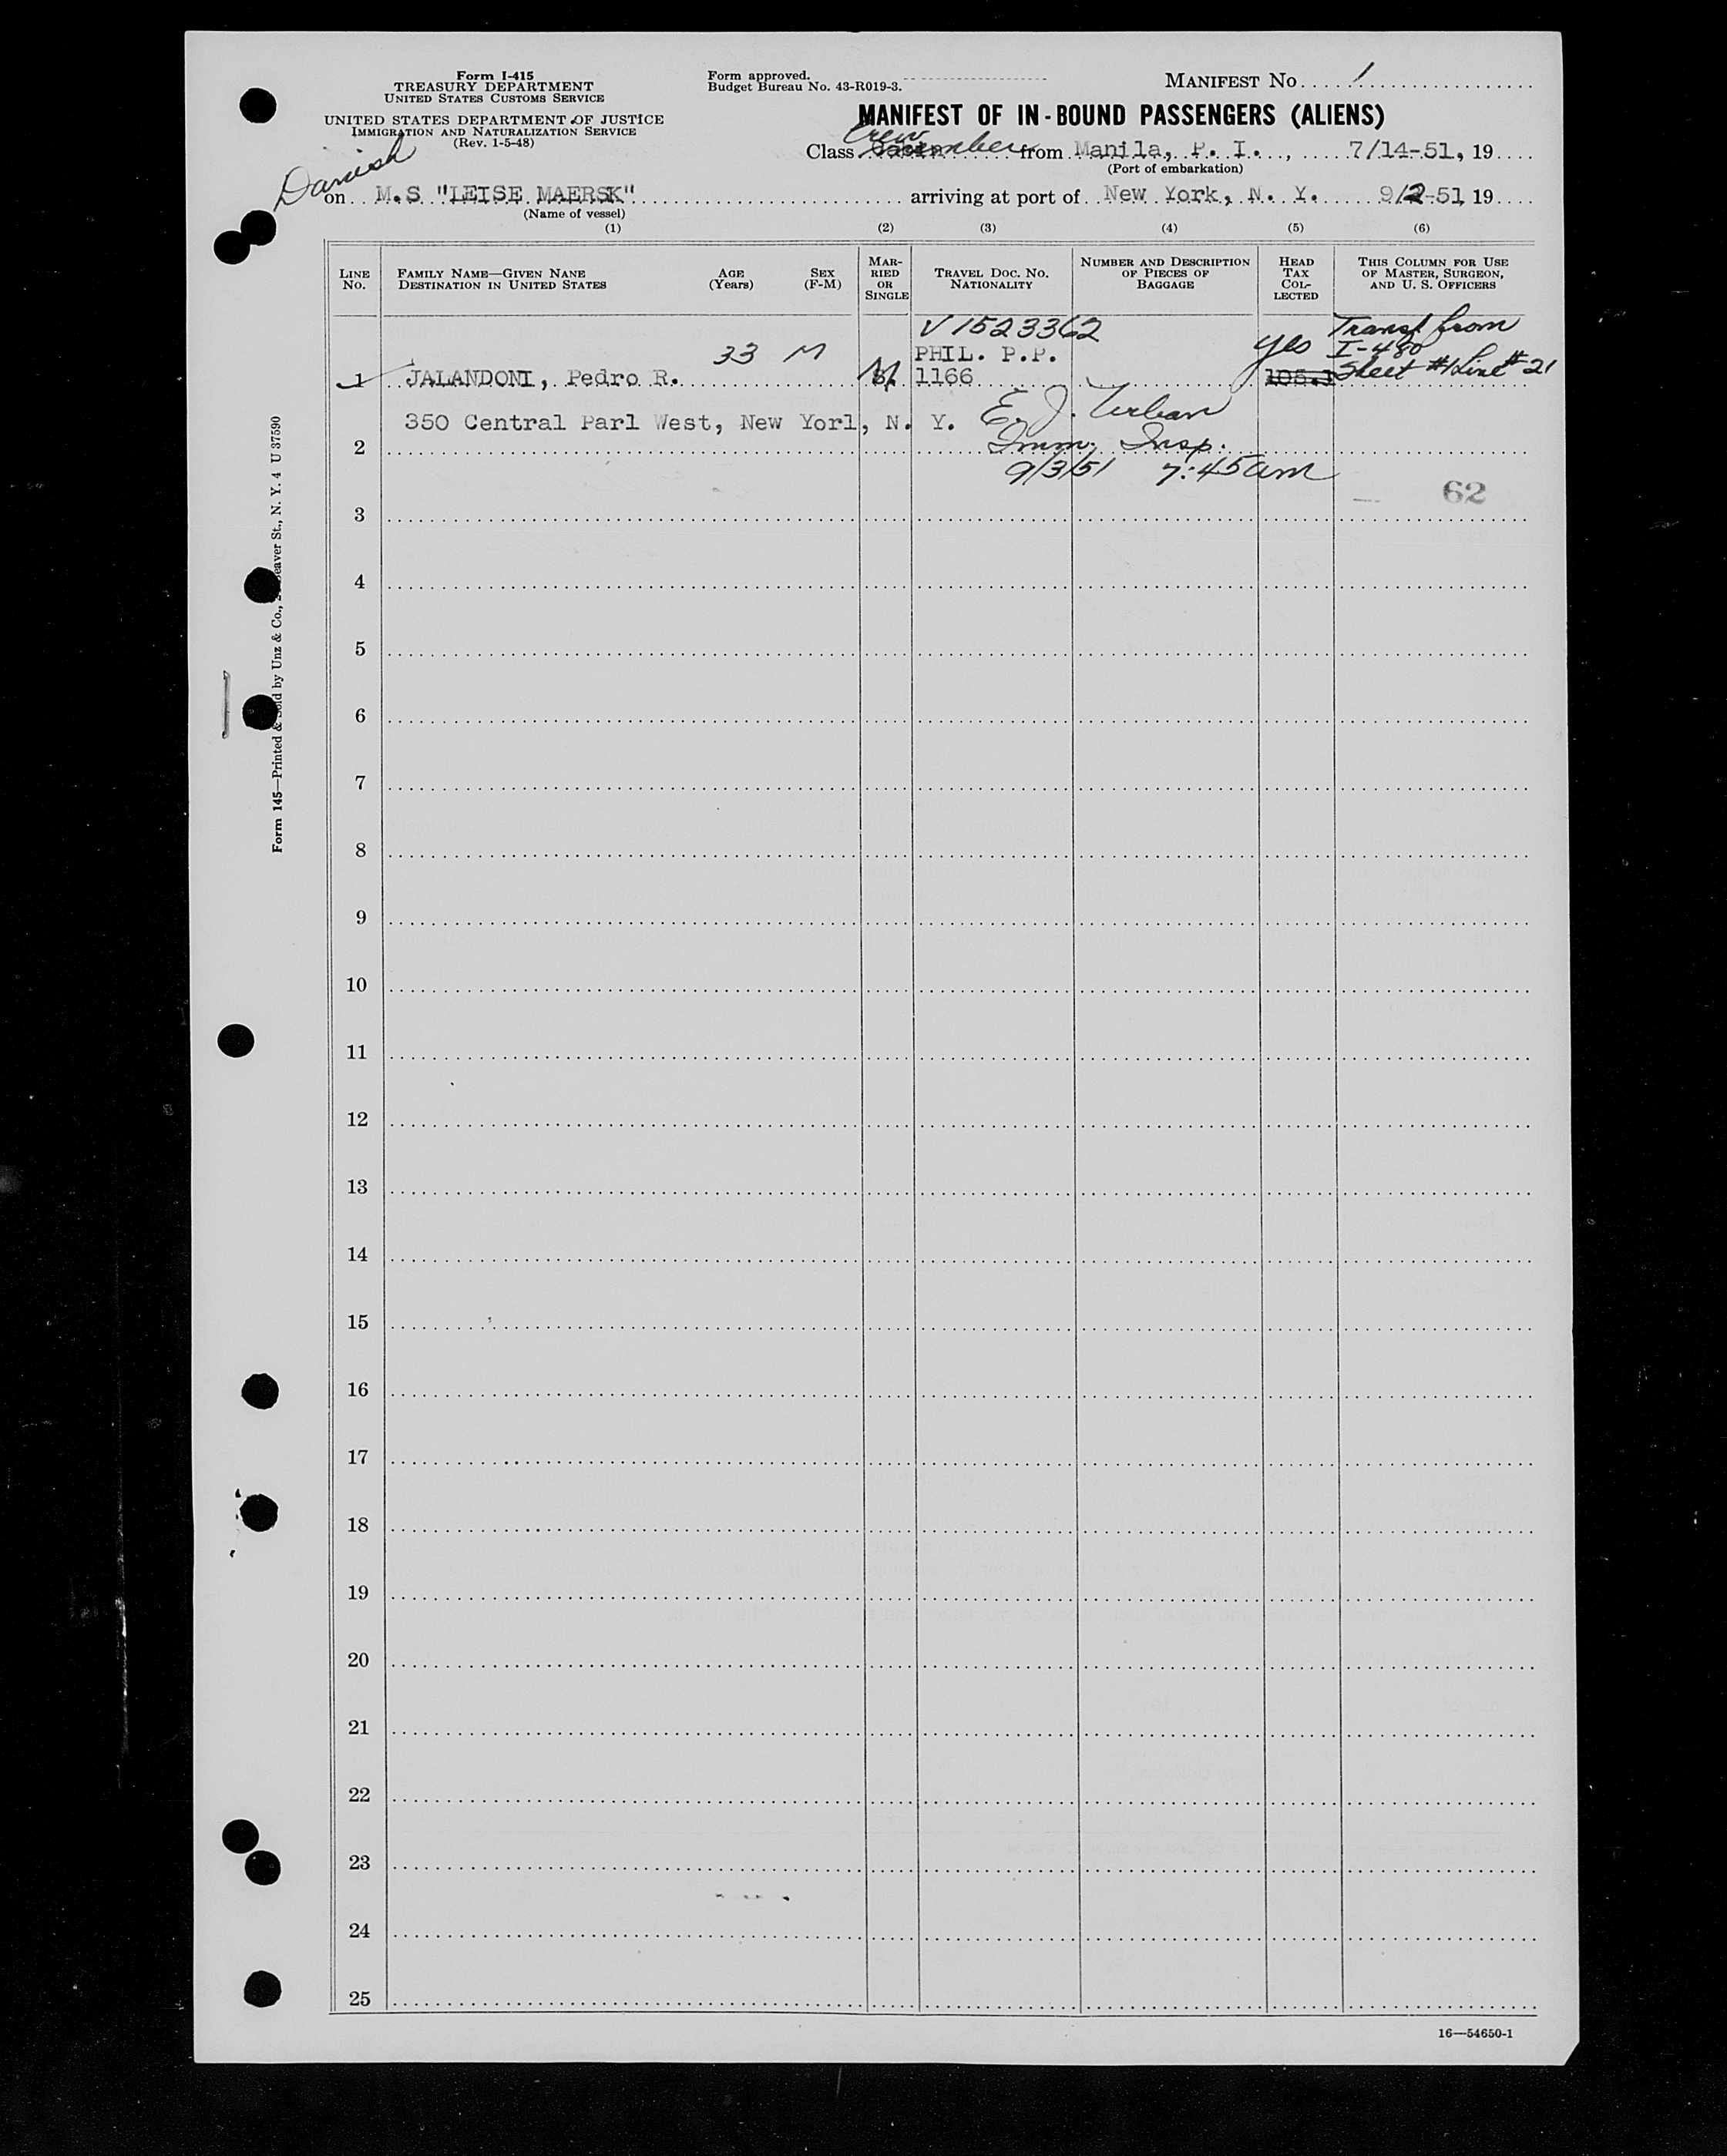 Form I-415
TREASURY DEPARTMENT
UNITED STATES CUSTOMS SERVICE
UNITED STATES DEPARTMENT OF JUSTICE
IMMIGRATION AND NATURALIZATION SERVICE
(Rev. 1-5-48)
Form approved.
Budget Bureau No. 43-R019-3.
MANIFEST NO. 1
MANIFEST OF IN-BOUND PASSENGERS (ALIENS)
Crew
Class member from Manila, P. I., 7/14-51, 19
(Port of embarkation)
Danish
on M.S "LEISE MAERSK" arriving at port of New York, N. Y. 9/2-51, 19
(Name of vessel)
(1) (2) (3) (4) (5) (6)
LINE NO.
FAMILY NAME—GIVEN NANE
DESTINATION IN UNITED STATES
AGE (Years)
SEX (F-M)
MARRIED OR SINGLE
TRAVEL DOC. NO.
NATIONALITY
NUMBER AND DESCRIPTION OF PIECES OF BAGGAGE
HEAD TAX COLLECTED
THIS COLUMN FOR USE OF MASTER, SURGEON, AND U. S. OFFICERS
V 1523362
33 M PHIL. P.P. yes Transf. from I-480
1 JALANDONI, Pedro R. M 1166 105.1 Sheet #1 Line #21
350 Central Parl West, New Yorl, N. Y. E. J.
2 Imm. Insp.
9/3/51 7:45 am
62
3
4
5
6
7
8
9
10
11
12
13
14
15
16
17
18
19
20
21
22
23
24
25
16—54650-1
Form 145—Printed & Sold by Unz & Co., Beaver St., N. Y. 4 U 37590